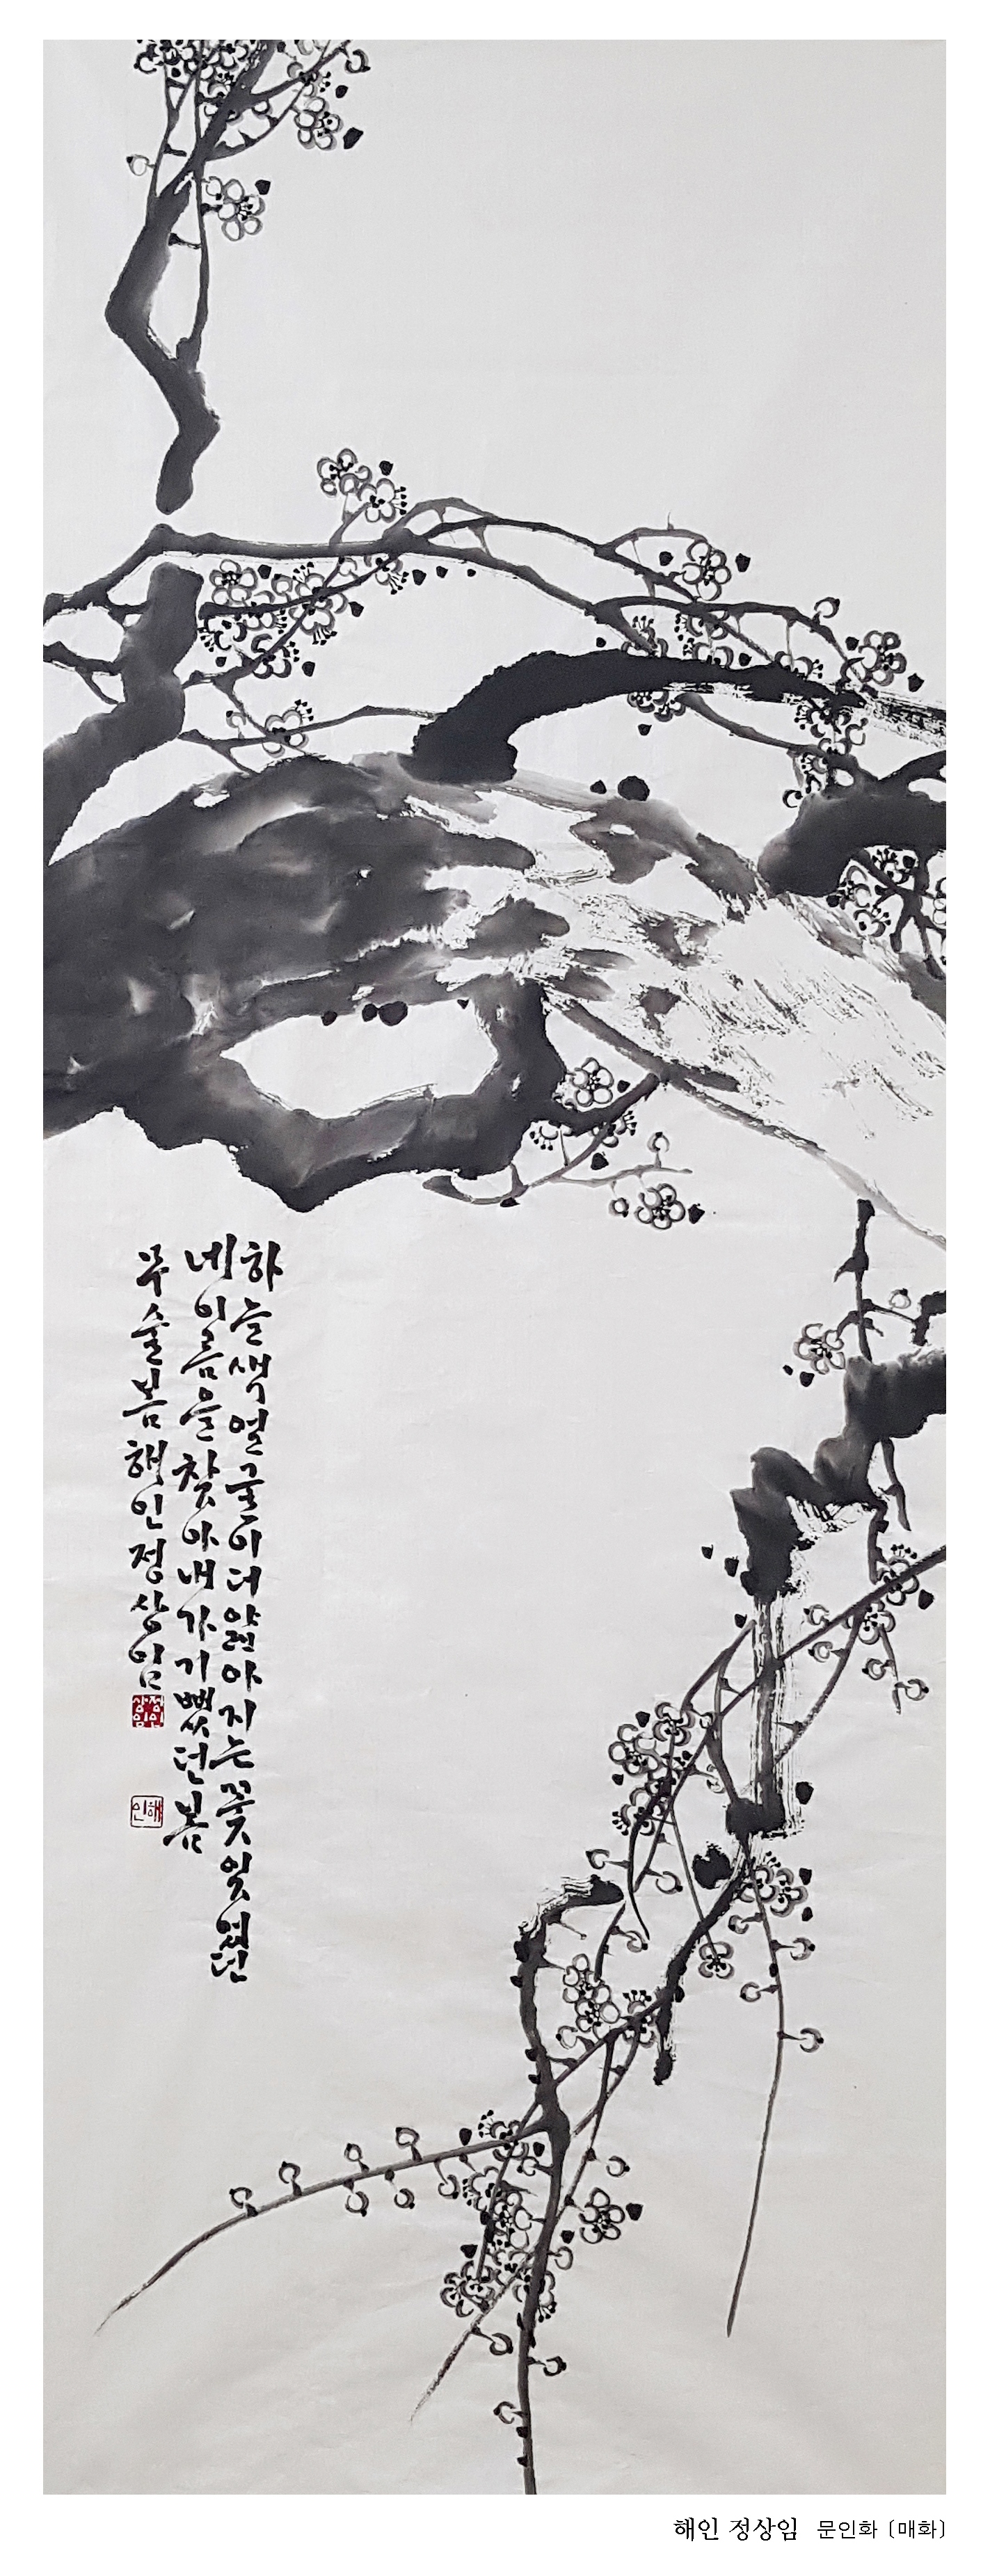 하늘색얼굴이더얇아지는꽃잊었던
네이름을찾아내가기뻤던봄
무술봄해인정상임
해인
해인 정상임 문인화 [매화]